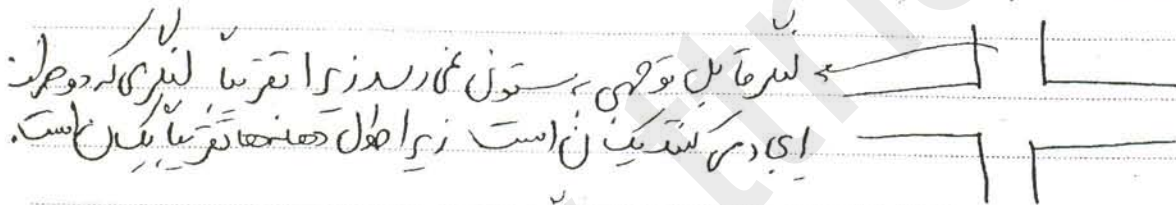 لنگر قابل توجهی به ستون نمی رسد زیرا تقریباً لنگری که دو طرف
ایجاد می کنند یکسان است زیرا طول دهنه‌ها تقریباً یکسان است.